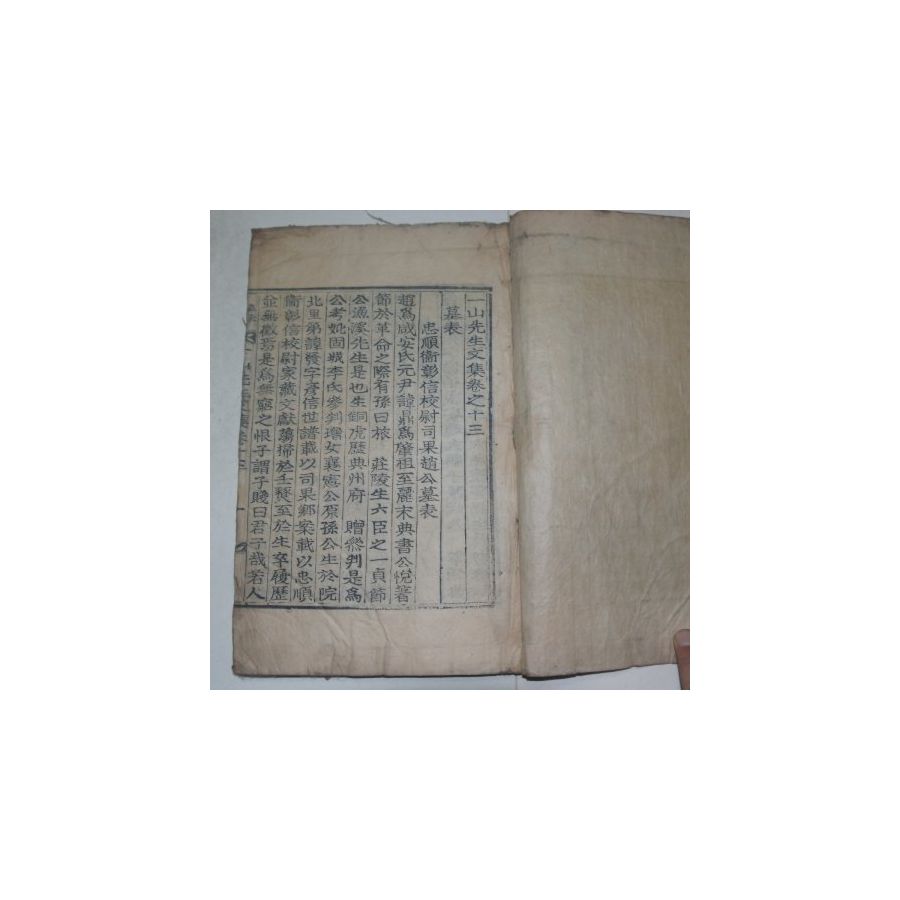 一山先生文集卷之十三
墓表
忠順衛彰信校尉司果趙公墓表
趙爲咸安氏元尹諱鼎爲肇祖至麗末典書公悅著
節於革命之際有孫曰旅 莊陵生六臣之一貞節
公漁溪先生是也生銅虎歷典州府 贈參判是爲
公考妣固城李氏參判 女襄憲公原孫公生於院
北里弟諱 字彥信世譜載以司果鄕案載以忠順
衛彰信校尉家藏文獻蕩掃於壬燹至於生卒履歷
並無徵焉是爲無窮之恨子謂子賤曰君子哉若人